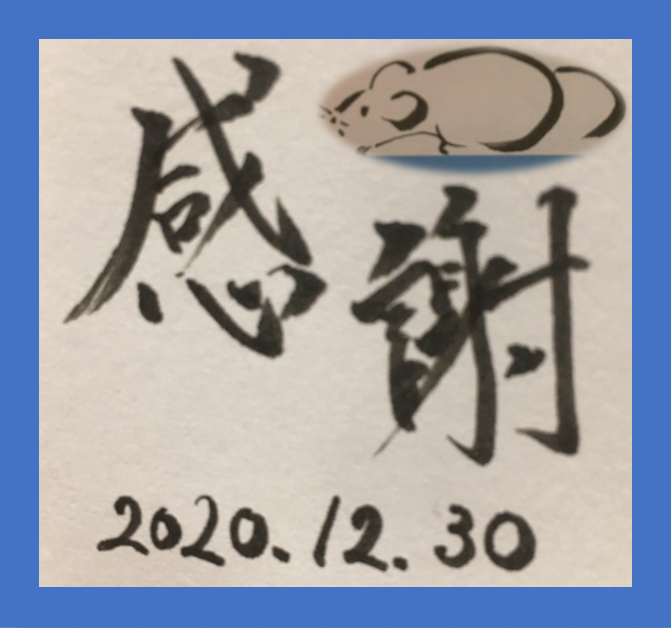 感謝
2020.12.30